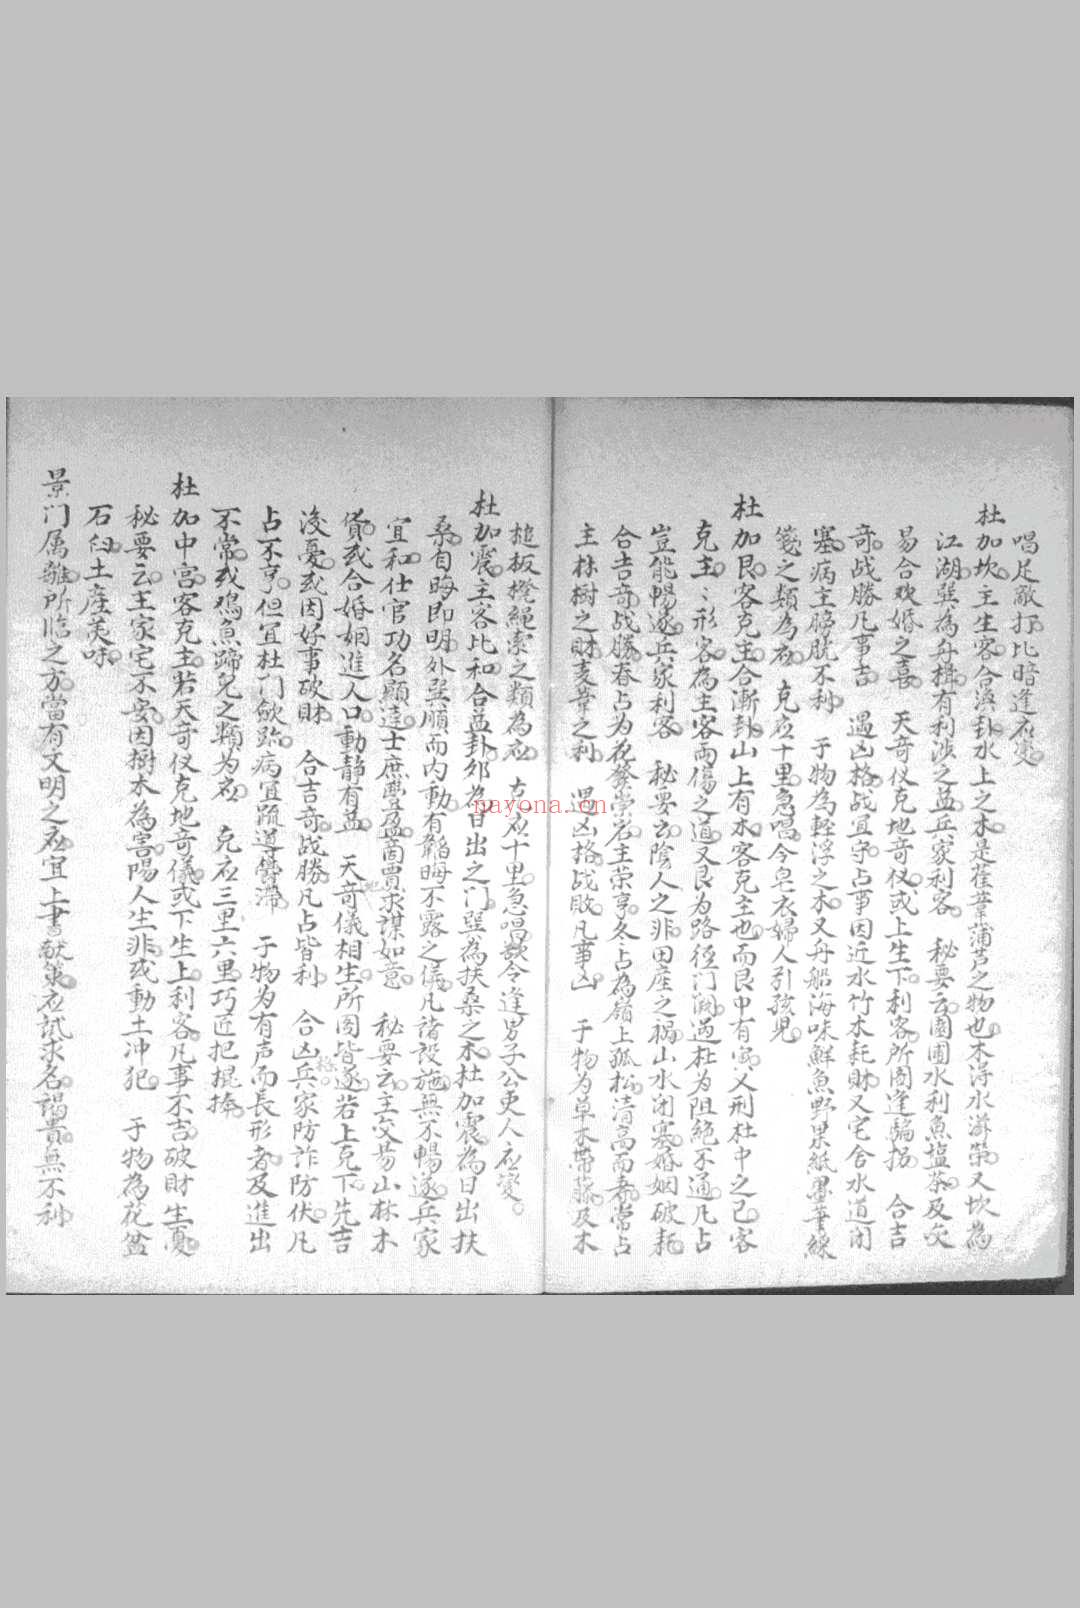 唱足敵打比暗逢应变
杜加坎主生客合渙卦水上之木是萑葦蒲芦之物也木浮水游第又坎為
江湖巽為舟楫有利涉之益兵家利客　秘要云園圃水利魚塩茶及交
易合欢婚之喜　天奇仪克地奇仪或上生下利客所圖逢騙拐　合吉
奇战勝凡事吉　遇凶格战宜守占事因近水竹木耗財又宅舍水道闭
塞病主膀胱不利　于物為輕浮之木又舟船海味鮮魚野果紙墨筆線
箋之類為应　克应十里急唱今皂衣婦人引孩兒
杜加艮客克主合漸卦山上有木客克主也而艮中有寅又刑杜中之己客
克主主形客為主客兩傷之道又艮为路径门阙遇杜为阻絕不通凡占
豈能暢遂兵家利客　秘要云陰人之非田座之禍山水闭塞婚姻破耗
合吉奇战勝春占为花發崇岩主荣亨冬占為嶺上孤松清高而寿常占
主林樹之財麦葦之利　遇凶格战敗凡事凶　于物为草木帶藤及木
槌板櫈繩索之類為应　古应十里急唱欲令逢男子公吏人应变
杜加震主客比和合益卦邜為日出之门巽為扶桑之木杜加震為日出扶
桑自晦即明外巽順而内動有韜晦不露之儀凡諸設施無不暢遂兵家
宜和仕官功名顯達士庶豐盈商賈求谋如意　秘要云主交易山林木
貨或合婚姻進人口動静有益　天奇儀相生所圖皆遂若上克下先吉
後憂或因好事破財　合吉奇战勝凡占皆利　合凶格兵家防詐防伏凡
占不亨但宜杜门斂跡病宜疏道鬱滞　于物为有声而長形者及進出
不常或鸡魚蹄兒之類为应　克应三里六里巧匠把棍捧
杜加中宮客克主若天奇仪克地奇儀或下生上利客凡事不吉破財生憂
秘要云主家宅不安因樹木為害陽人生非或動土冲犯　于物為花盆
石臼土産美味
景门属離所临之方當有文明之应宜上書献策应試求名謁貴無不利
nayona.cn